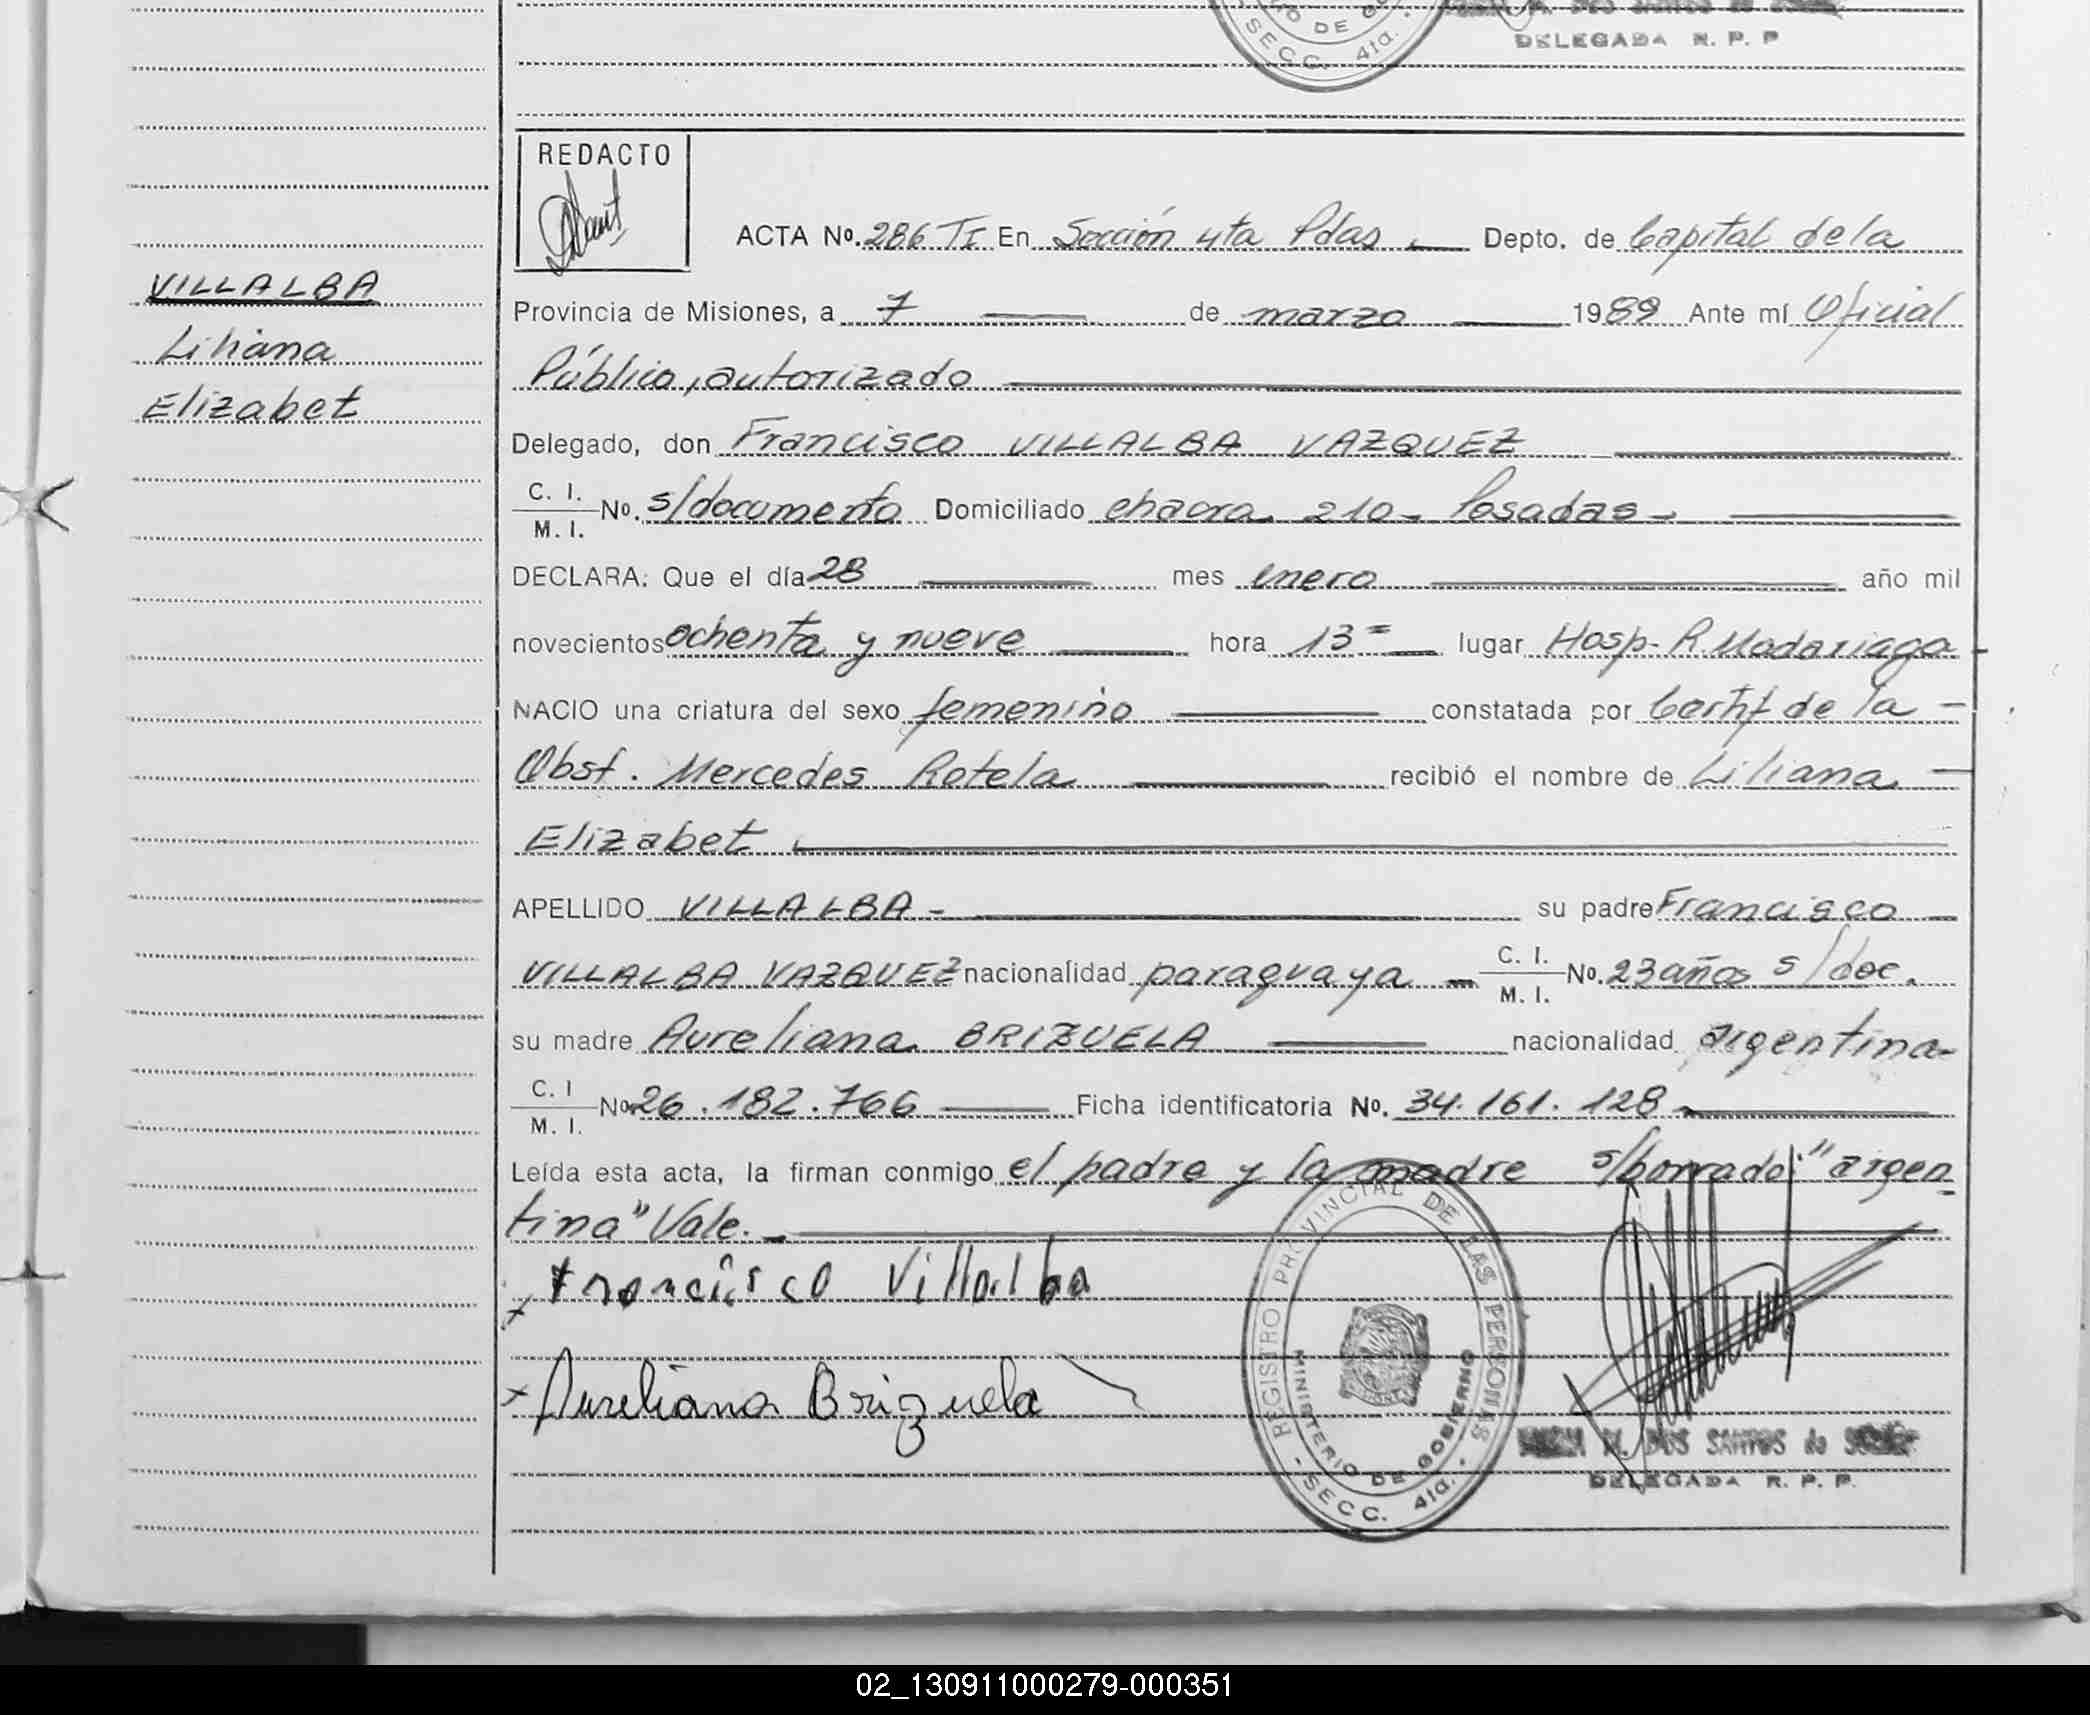 DELEGADA R. P. P
SECC. 4ta.
DE
REDACTO
ACTA No. 286 TI En Sección 4ta Pdas Depto. de Capital de la
VILLALBA
Liliana
Elizabet
Provincia de Misiones, a 7 de marzo 1989 Ante mí Oficial
Público, autorizado
Delegado, don Francisco VILLALBA VAZQUEZ
C. I. / M. I. No. s/documento Domiciliado chacra 210- Posadas-
DECLARA: Que el día 28 mes enero año mil
novecientos ochenta y nueve hora 13= lugar Hosp. R. Madariaga
NACIO una criatura del sexo femenino constatada por Certif de la -
Obst. Mercedes Rotela recibió el nombre de Liliana -
Elizabet
APELLIDO VILLALBA- su padre Francisco
VILLALBA VAZQUEZ nacionalidad paraguaya - C. I. / M. I. No. 23 años s/doc.
su madre Aureliana BRIZUELA nacionalidad argentina-
C. I / M. I. No. 26.182.766 Ficha identificatoria No. 34.161.128
Leída esta acta, la firman conmigo el padre y la madre s/borrado: "argen
tina" Vale.-
x Francisco Villalba
x Aureliana Brizuela
REGISTRO PROVINCIAL DE LAS PERSONAS
MINISTERIO DE GOBIERNO
- SECC. 4ta. -
M. DOS SANTOS de
DELEGADA R. P. P.
02_130911000279-000351